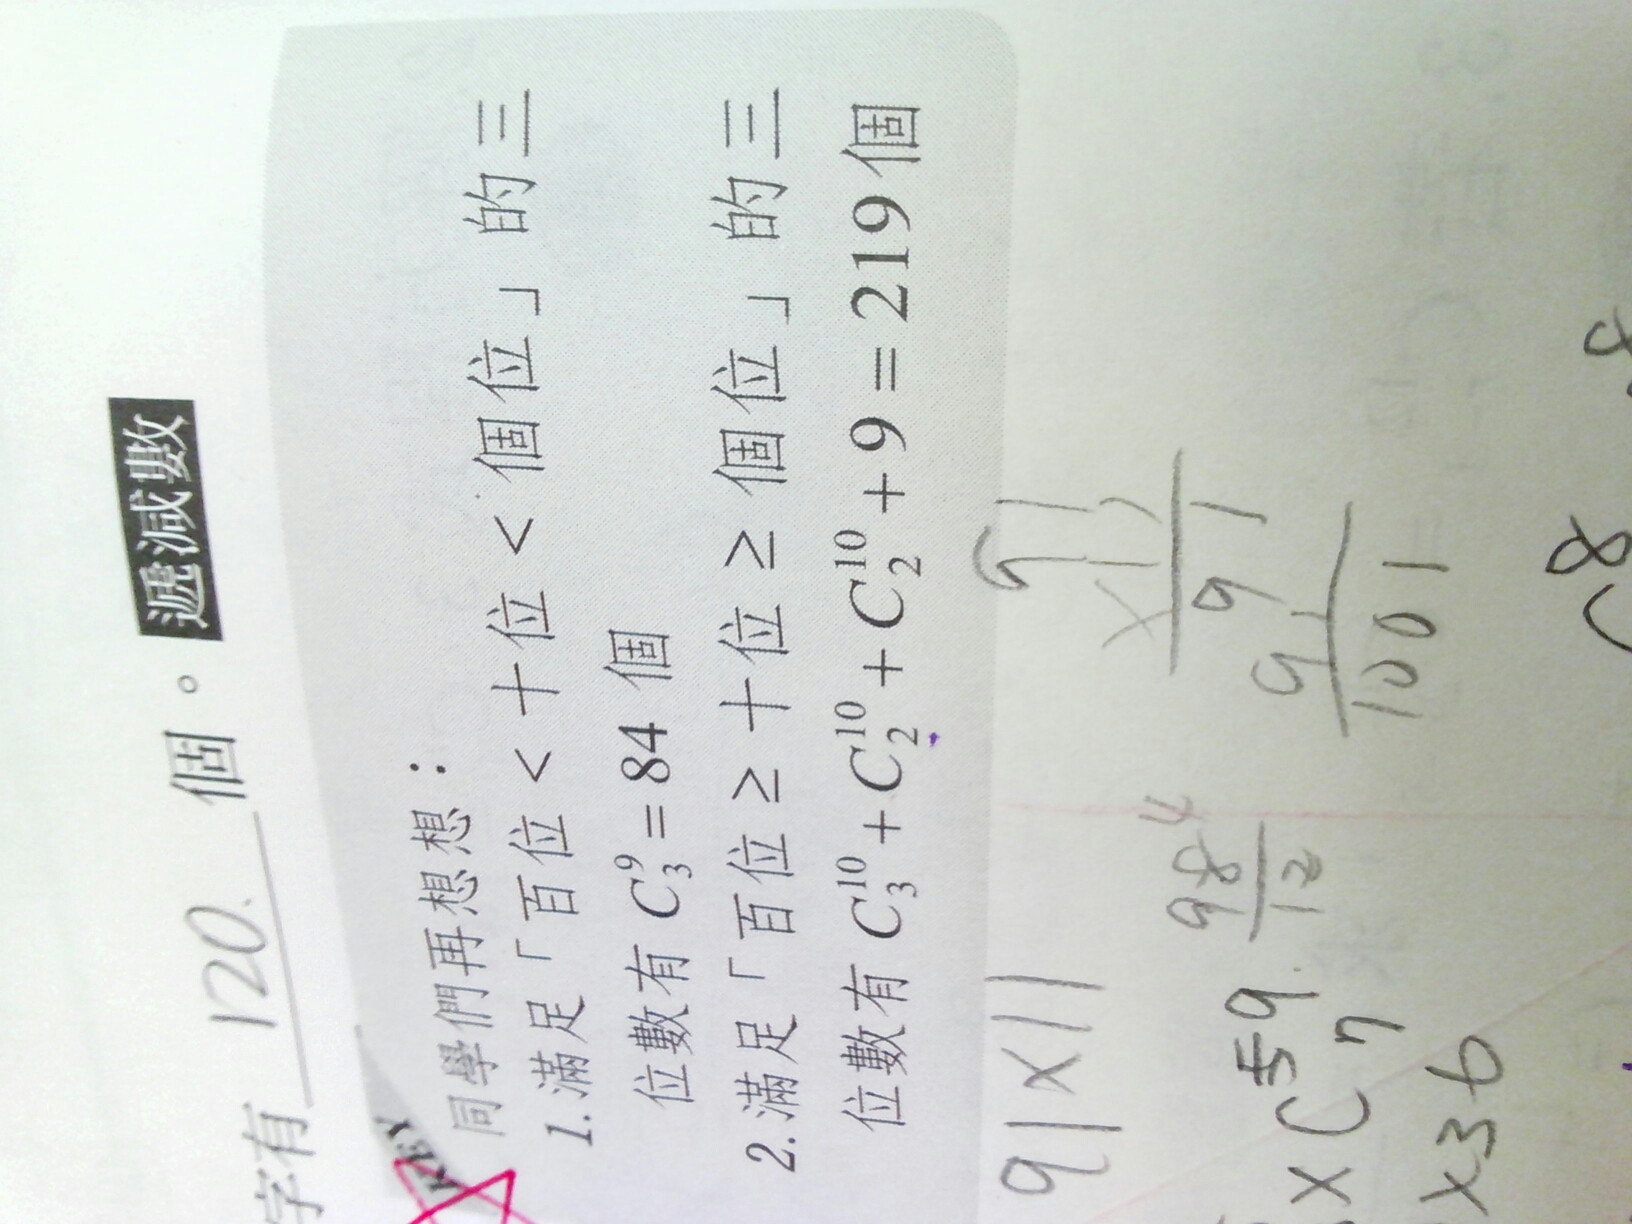 字有 120 個。遞減數
KEY
同學們再想想：
1. 滿足「百位 < 十位 < 個位」的三
位數有 C₃⁹ = 84 個
2. 滿足「百位 ≥ 十位 ≥ 個位」的三
位數有 C₃¹⁰ + C₂¹⁰ + C₂¹⁰ + 9 = 219 個
91×11
91
×11
91
91
1001
984
12
×C
×36
C8